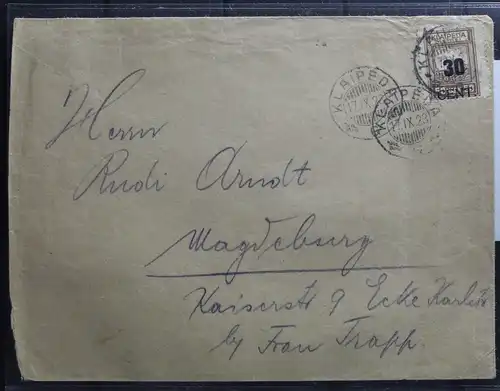 KLAIPEDA
30
CENT.
KLAIPEDA
17.IX.23
KLAIPEDA
17.IX.23
Herrn
Rudi Arndt
Magdeburg
Kaiserstr 9 Ecke Karlstr
by Frau Trapp.